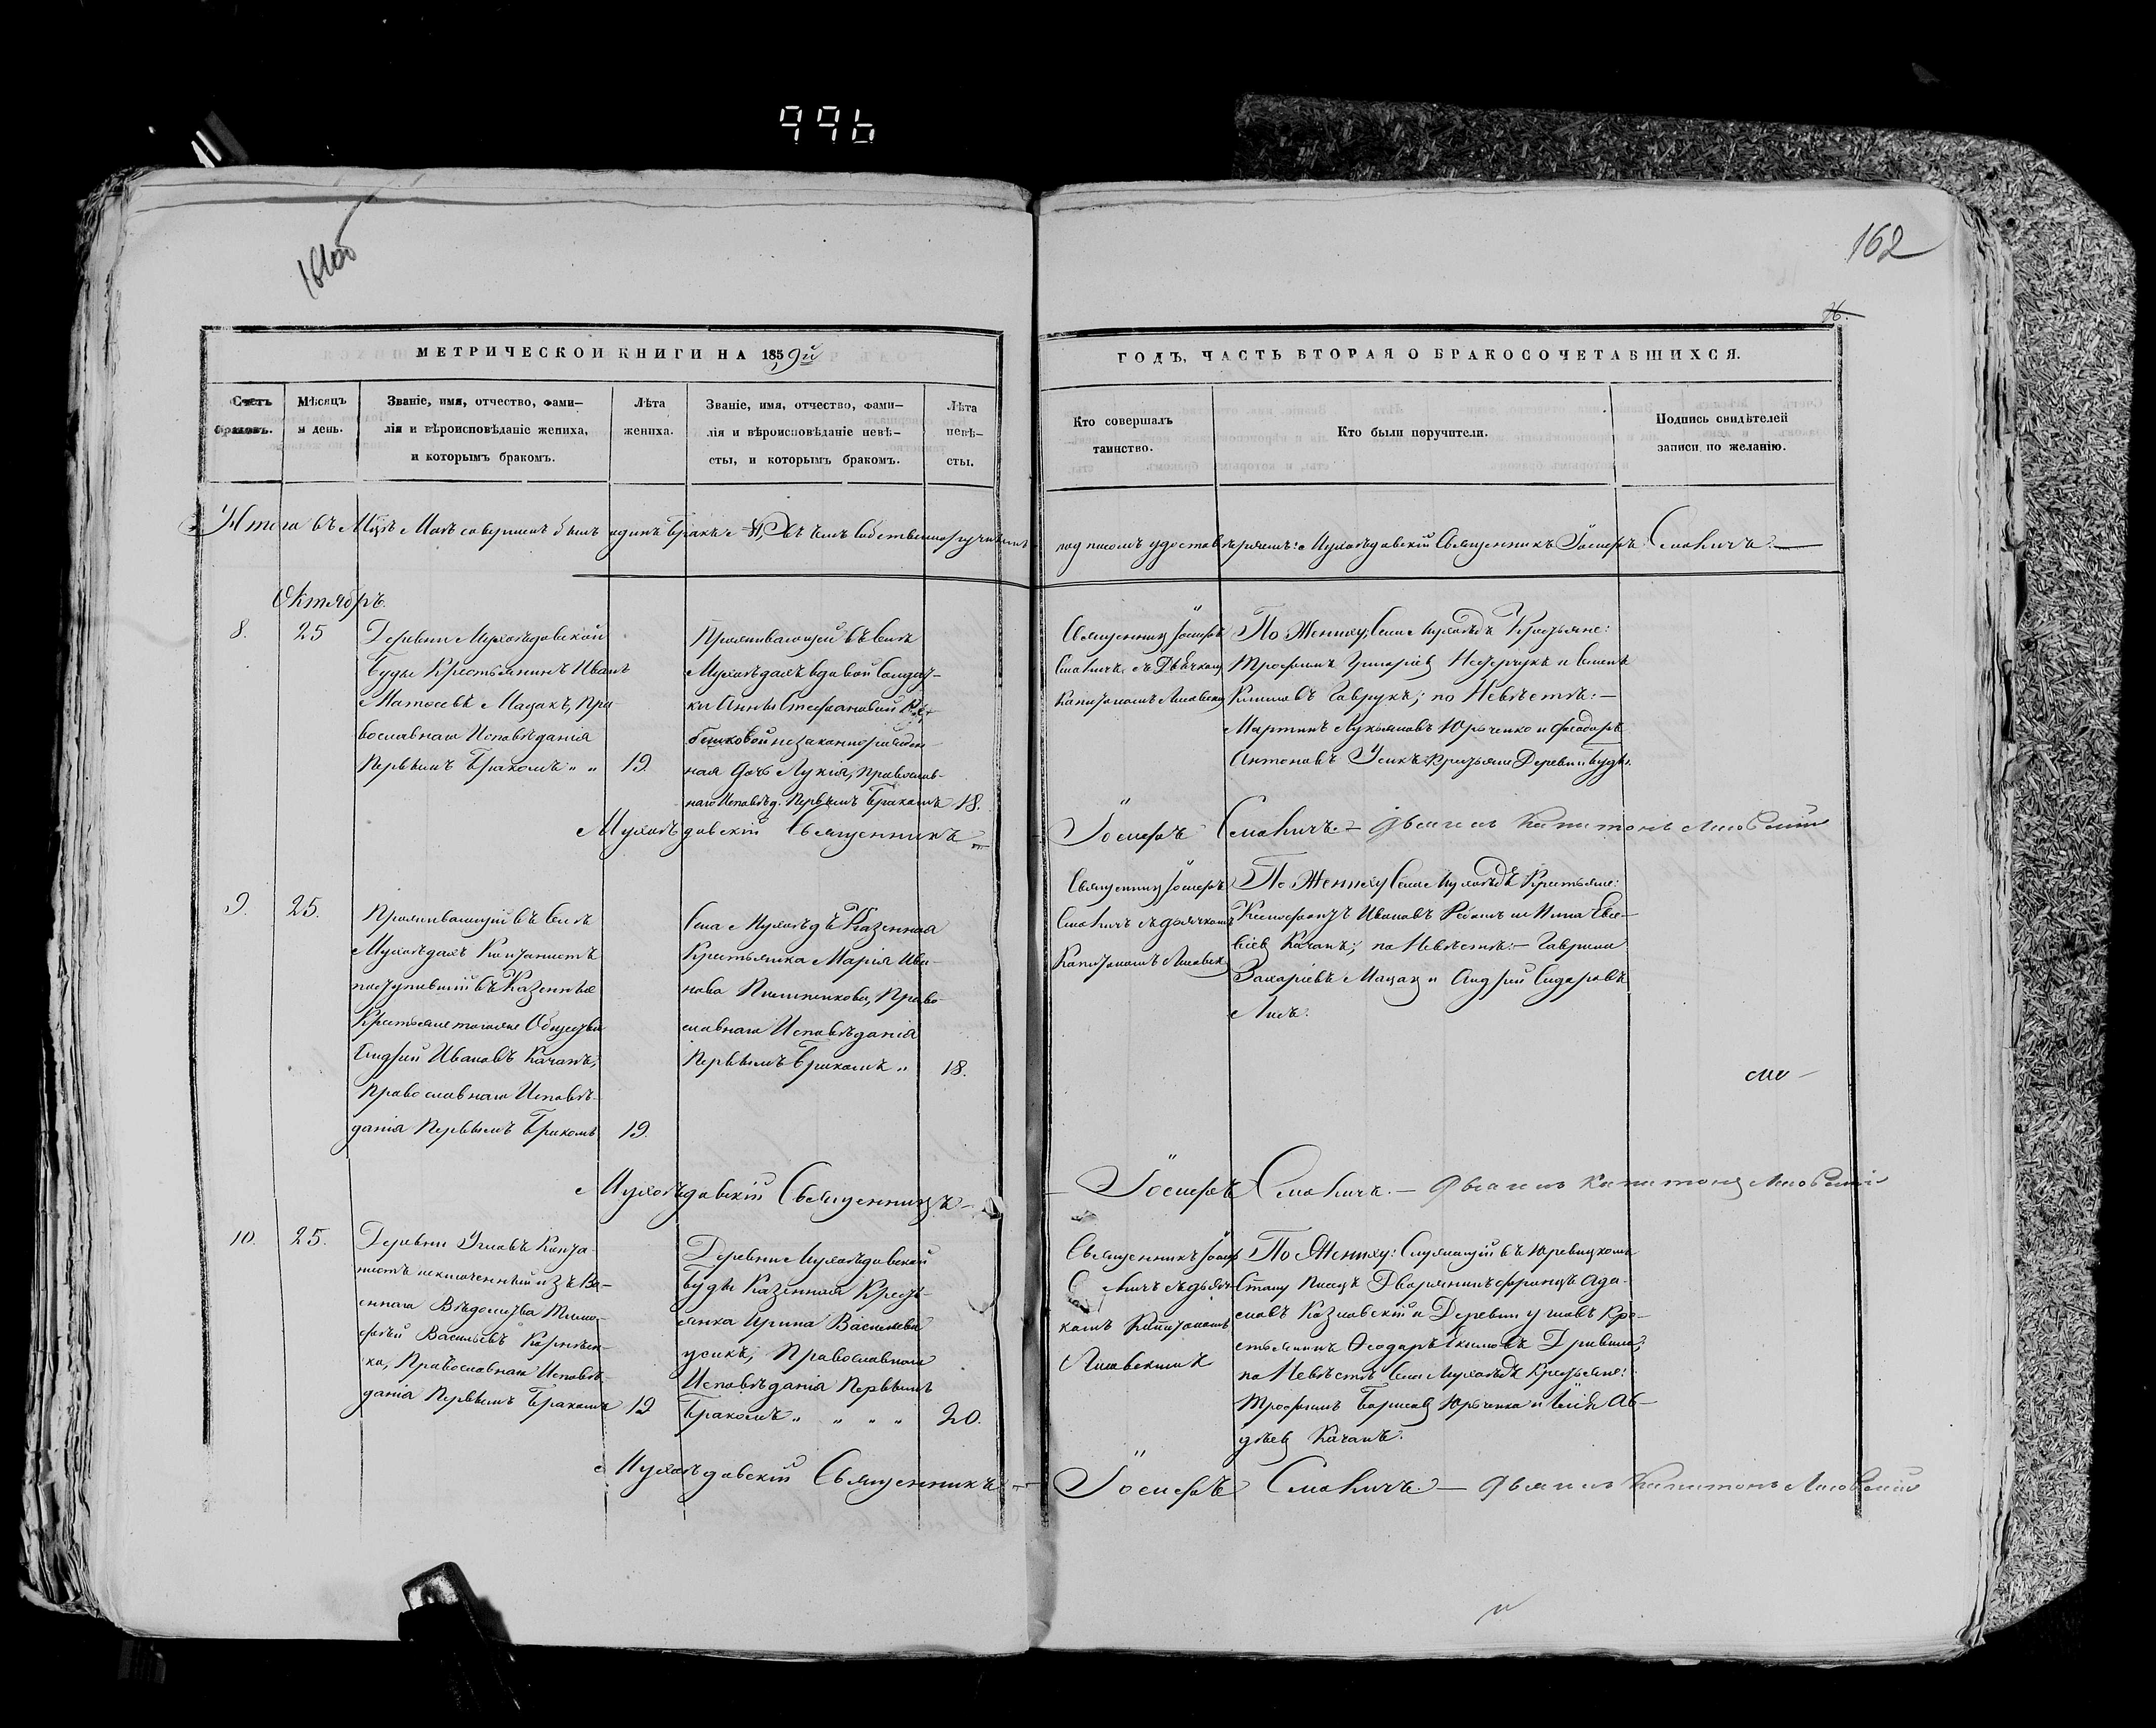 996
161об
162
МЕТРИЧЕСКОЙ КНИГИ НА 1859й
ГОДЪ, ЧАСТЬ ВТОРАЯ О БРАКОСОЧЕТАВШИХСЯ.
Счетъ браковъ.
Мѣсяцъ и день.
Званіе, имя, отчество, фами-
лія и вѣроисповѣданіе жениха,
и которымъ бракомъ.
Лѣта
жениха.
Званіе, имя, отчество, фами-
лія и вѣроисповѣданіе невѣ-
сты, и которымъ бракомъ.
Лѣта
невѣ-
сты.
Кто совершалъ
таинство.
Кто были поручители.
Подпись свидѣтелей
записи по желанію.
Итого въ Мцѣ Маѣ совершенъ былъ одинъ Бракъ въ чемъ собственноручнымъ
подписомъ удостовѣряемъ: Мухоѣдовскій Священникъ Іосифъ Смоличъ.
Октябрь.
8.
25
Деревни Мухоѣдовской
Буды Крестьянинъ Иванъ
Матѳеевъ Мацакъ, Пра-
вославнаго Исповѣданія
Первымъ Бракомъ
19.
Проживающей въ Селѣ
Мухоѣдахъ вдовой Солдат-
ки Анны Стефановой
незаконнорожден-
ная дочь Лукія, Православ-
наго Исповѣд. Первымъ Бракомъ
18.
Священникъ Іосифъ
Смоличъ съ Дьячкомъ
Капитономъ Лисовским
По Жениху: Села Мухоѣдъ Крестьяне:
Трофимъ Григоріев Нестерчукъ и Семенъ
Климовъ Гаврукъ; по Невѣстѣ:
Мартинъ Лукьяновъ Юрченко и Феодоръ
Антоновъ Усикъ Крестьяне Деревни Буды.
Мухоѣдовскій Священникъ
Іосифъ Смоличъ. Дьячекъ Капитонъ Лисовскій
9.
25.
Проживающій въ Селѣ
Мухоѣдахъ Кантонистъ
поступившій въ Казенные
Крестьяне тогоже Общества
Андрей Ивановъ Качанъ,
Православнаго Исповѣ-
данія Первымъ Бракомъ
19.
Села Мухоѣдъ Казенная
Крестьянка Марія Ива-
нова Право-
славнаго Исповѣданія
Первымъ Бракомъ
18.
Священникъ Іосифъ
Смоличъ съ дьячкомъ
Капитономъ Лисовск
По Жениху Села Мухоѣдъ Крестьяне:
Ксенофонтъ Ивановъ
Качанъ; по Невѣстѣ: Гавріилъ
Захаріевъ Мацак и Андрей Сидоровъ
Лисъ.
Мухоѣдовскій Священникъ
Іосифъ Смоличъ. Дьячекъ Капитонъ Лисовскій
10.
25.
Деревни Угловъ Канто-
нистъ исключенный изъ Во-
еннаго Вѣдомства Тимо-
фей Васильевъ
Православнаго Исповѣ
данія Первымъ Бракомъ
19
Деревни Мухоѣдовской
Буды Казенная Кресть-
янка Ирина Васильева
Усикъ, Православнаго
Исповѣданія Первымъ
Бракомъ
20.
Священникъ Іосиф
личъ съ дьяч-
комъ Капитономъ
Лисовскимъ
По Жениху: Служащій въ Юревицкомъ
Стану Писецъ Дворянинъ Францъ Ада-
мовъ Козловскій и Деревни Угловъ Кре-
стьянинъ Феодоръ Екимовъ
по Невѣстѣ Села Мухоѣдъ Крестьяне:
Трофимъ Борисов Юрченко и Ав-
дѣев Качанъ.
Мухоѣдовскій Священникъ
Іосифъ Смоличъ. Дьячекъ Капитонъ Лисовскій